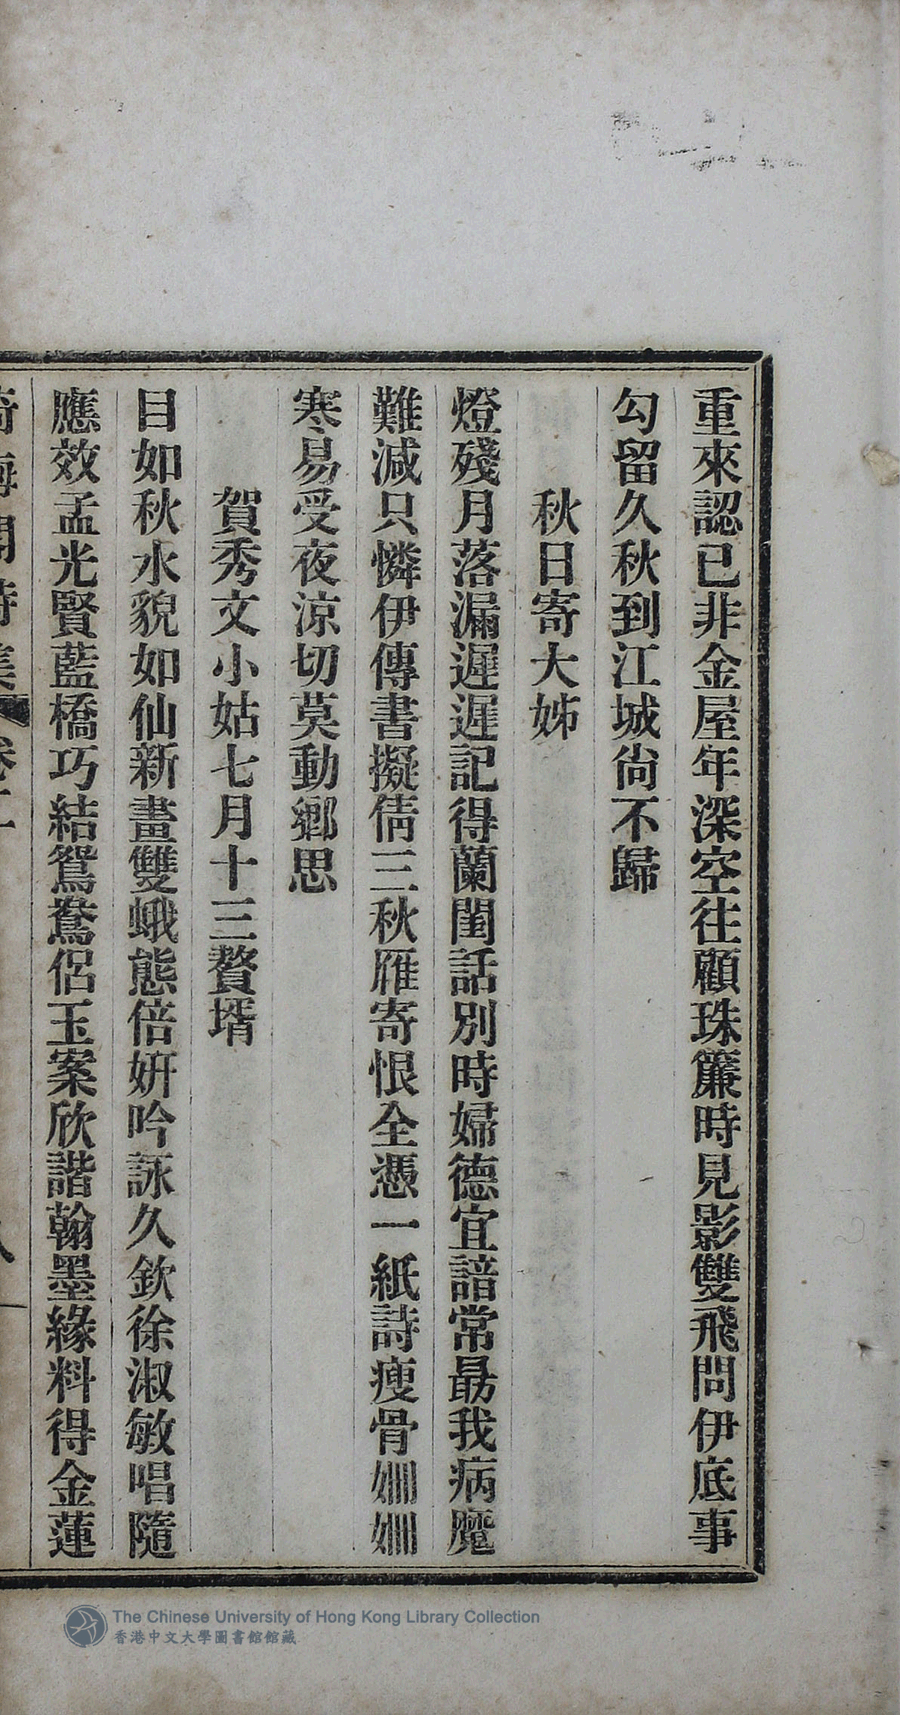 重來認已非金屋年深空往顧珠簾時見影雙飛問伊底事
勾留久秋到江城尙不歸
秋日寄大姊
燈殘月落漏遲遲記得蘭閨話別時婦德宜諳常勗我病魔
難減只憐伊傳書擬倩三秋雁寄恨全憑一紙詩瘦骨姍姍
寒易受夜涼切莫動鄉思
賀秀文小姑七月十三贅壻
目如秋水貌如仙新畫雙蛾態倍妍吟詠久欽徐淑敏唱隨
應效孟光賢藍橋巧結鴛鴦侶玉案欣諧翰墨緣料得金蓮
The Chinese University of Hong Kong Library Collection
香港中文大學圖書館館藏